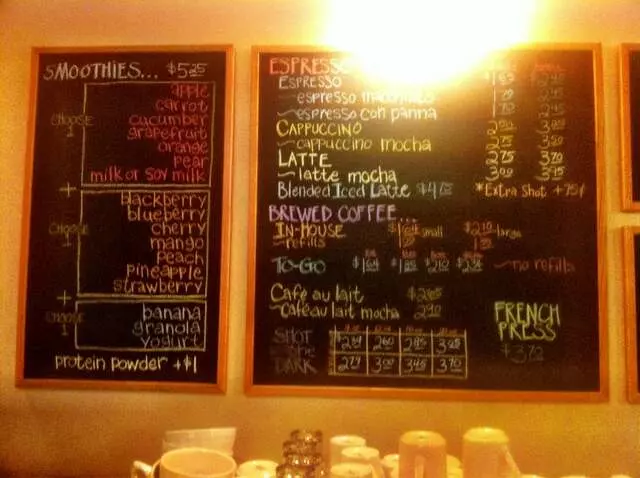 SMOOTHIES... $5.25
CHOOSE 1
apple
carrot
cucumber
grapefruit
orange
pear
milk or soy milk
+
CHOOSE 1
blackberry
blueberry
cherry
mango
peach
pineapple
strawberry
+
CHOOSE 1
banana
granola
yogurt
protein powder +$1
ESPRESSO
ESPRESSO
~espresso macchiato
~espresso con panna
CAPPUCCINO
~cappuccino mocha
LATTE 2.75 3.70
~latte mocha 3.00 3.95
Blended Iced Latte
*Extra Shot +75¢
BREWED COFFEE...
IN-HOUSE small $2.10 large
~refills
TO-GO $1.64 $1.85 $2.10 $2.34 ~no refills
Café au lait
~café au lait mocha 2.90
SHOT in the DARK
2.60 2.85
3.00 3.45 3.70
FRENCH PRESS
$3.70